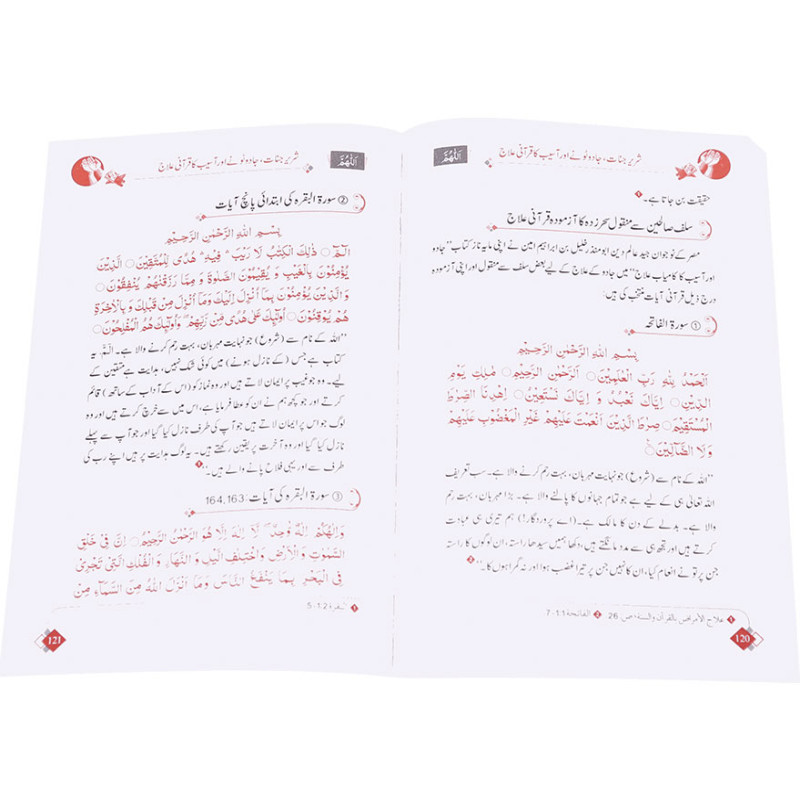 شریر جنات، جادو ٹونے اور آسیب کا قرآنی علاج
اَللّٰهُمَّ
حقیقت بن جاتا ہے۔ ❶
سلف صالحین سے منقول سحر زدہ کا آزمودہ قرآنی علاج
مصر کے نوجوان جید عالم دین ابو منذر خلیل بن ابراہیم امین نے اپنی مایہ ناز کتاب ”جادو
اور آسیب کا کامیاب علاج“ میں جادو کے علاج کے لیے بعض سلف سے منقول اور اپنی آزمودہ
درج ذیل قرآنی آیات منتخب کی ہیں:
① سورۃ الفاتحہ
بِسْمِ اللّٰهِ الرَّحْمٰنِ الرَّحِيْمِ
اَلْحَمْدُ لِلّٰهِ رَبِّ الْعٰلَمِيْنَ○ الرَّحْمٰنِ الرَّحِيْمِ○ مٰلِكِ يَوْمِ
الدِّيْنِ○ اِيَّاكَ نَعْبُدُ وَ اِيَّاكَ نَسْتَعِيْنُ○ اِهْدِنَا الصِّرَاطَ
الْمُسْتَقِيْمَ○ صِرَاطَ الَّذِيْنَ اَنْعَمْتَ عَلَيْهِمْ غَيْرِ الْمَغْضُوْبِ عَلَيْهِمْ
وَلَا الضَّآلِّيْنَ○
”اللہ کے نام سے (شروع) جو نہایت مہربان، بہت رحم کرنے والا ہے۔ سب تعریف
اللہ تعالیٰ ہی کے لیے ہے جو تمام جہانوں کا پالنے والا ہے۔ بڑا مہربان، بہت رحم
والا ہے۔ بدلے کے دن کا مالک ہے۔ (اے پروردگار!) ہم تیری ہی عبادت
کرتے ہیں اور تجھ ہی سے مدد مانگتے ہیں، دکھا ہمیں سیدھا راستہ، ان لوگوں کا راستہ
جن پر تو نے انعام کیا، ان کا نہیں جن پر تیرا غضب ہوا اور نہ گمراہوں کا۔“ ❷
❶ علاج الأمراض بالقرآن والسنة، ص: 26 ❷ الفاتحة 1:1-7
120
شریر جنات، جادو ٹونے اور آسیب کا قرآنی علاج
اَللّٰهُمَّ
② سورۃ البقرہ کی ابتدائی پانچ آیات
بِسْمِ اللّٰهِ الرَّحْمٰنِ الرَّحِيْمِ
الٓمّٓ○ ذٰلِكَ الْكِتٰبُ لَا رَيْبَ ۛ فِيْهِ ۛ هُدًى لِّلْمُتَّقِيْنَ○ الَّذِيْنَ
يُؤْمِنُوْنَ بِالْغَيْبِ وَ يُقِيْمُوْنَ الصَّلٰوةَ وَ مِمَّا رَزَقْنٰهُمْ يُنْفِقُوْنَ○
وَ الَّذِيْنَ يُؤْمِنُوْنَ بِمَآ اُنْزِلَ اِلَيْكَ وَمَآ اُنْزِلَ مِنْ قَبْلِكَ وَ بِالْاٰخِرَةِ
هُمْ يُوْقِنُوْنَ○ اُولٰٓئِكَ عَلٰى هُدًى مِّنْ رَّبِّهِمْ ۗ وَاُولٰٓئِكَ هُمُ الْمُفْلِحُوْنَ○
”اللہ کے نام سے (شروع) جو نہایت مہربان، بہت رحم کرنے والا ہے۔ الٓمّٓ یہ
کتاب ہے جس (کے نازل ہونے) میں کوئی شک نہیں، ہدایت ہے متقین کے
لیے۔ وہ جو غیب پر ایمان لاتے ہیں اور وہ نماز کو (اس کے آداب کے ساتھ) قائم
کرتے ہیں اور جو کچھ ہم نے ان کو عطا فرمایا ہے، اس میں سے خرچ کرتے ہیں اور وہ
لوگ جو اس پر ایمان لاتے ہیں جو آپ کی طرف نازل کیا گیا اور جو آپ سے پہلے
نازل کیا گیا اور وہ آخرت پر یقین رکھتے ہیں۔ یہ لوگ ہدایت پر ہیں اپنے رب کی
طرف سے اور یہی فلاح پانے والے ہیں۔“ ❶
③ سورۃ البقرہ کی آیات: 164,163
وَاِلٰهُكُمْ اِلٰهٌ وَّاحِدٌ ۚ لَآ اِلٰهَ اِلَّا هُوَ الرَّحْمٰنُ الرَّحِيْمُ○ اِنَّ فِيْ خَلْقِ
السَّمٰوٰتِ وَ الْاَرْضِ وَ اخْتِلَافِ الَّيْلِ وَ النَّهَارِ وَ الْفُلْكِ الَّتِيْ تَجْرِيْ
فِي الْبَحْرِ بِمَا يَنْفَعُ النَّاسَ وَ مَآ اَنْزَلَ اللّٰهُ مِنَ السَّمَآءِ مِنْ
❶ البقرة 1:2-5
121